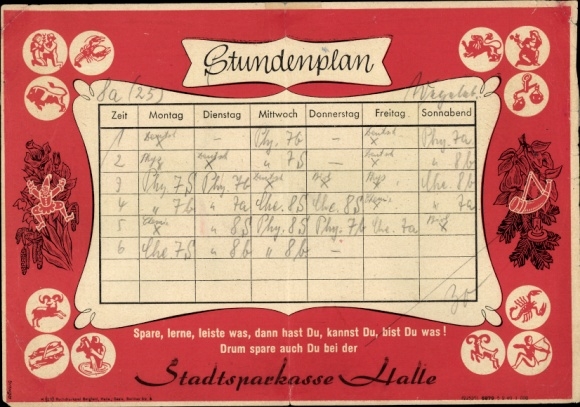 Stundenplan
8a (25)
Zeit Montag Dienstag Mittwoch Donnerstag Freitag Sonnabend
1 Deutsch x — Phy. 7b — Deutsch x Phy. 7a
2 x Deutsch x " 7S — Deutsch x " 8b
3 Phy 7S Phy 7b Deutsch x x x Che. 8b
4 " 7b " 7a Che. 8S Che. 8S " 7a
5 x " 8S Phy. 8S Phy. 7b Che. 7a x
6 Che 7S " 8b " 8b —
30
Spare, lerne, leiste was, dann hast Du, kannst Du, bist Du was!
Drum spare auch Du bei der
Stadtsparkasse Halle